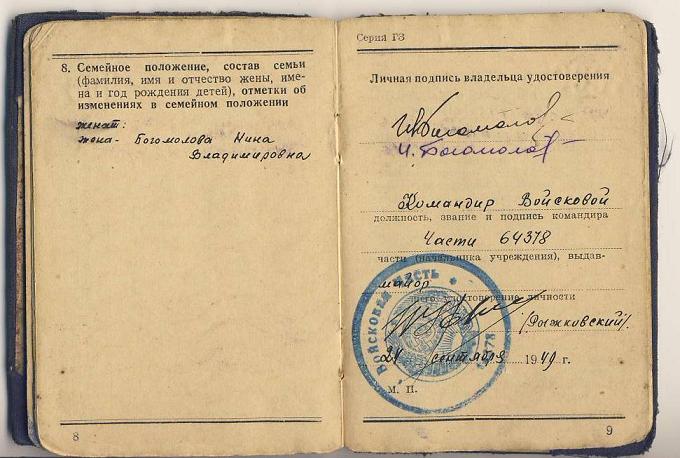 8. Семейное положение, состав семьи
(фамилия, имя и отчество жены, име-
на и год рождения детей), отметки об
изменениях в семейном положении
женат:
жена- Богомолова Нина
Владимировна
8
Серия ГЗ
Личная подпись владельца удостоверения
И. Богомолов
И. Богомолов
Командир Войсковой
должность, звание и подпись командира
Части 64378
части (начальника учреждения), выдав-
майор
шего удостоверение личности
(Рыжковский).
ВОЙСКОВАЯ ЧАСТЬ
24 сентября 1949 г.
М. П.
9